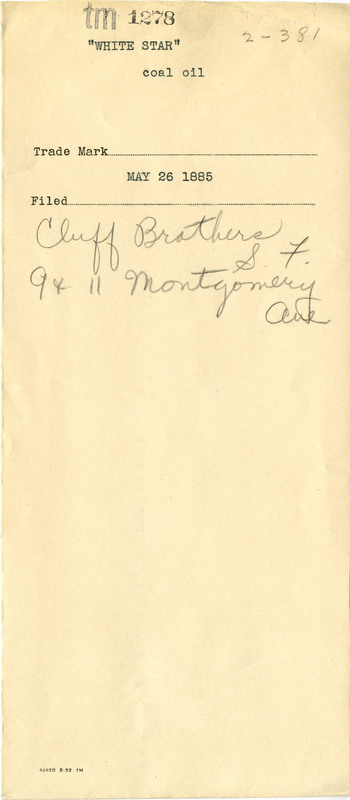 tm 1278
2-381
"WHITE STAR"
coal oil
Trade Mark
MAY 26 1885
Filed
Cluff Brothers
S. F.
9 & 11 Montgomery
Ave
82660 2-32 1M